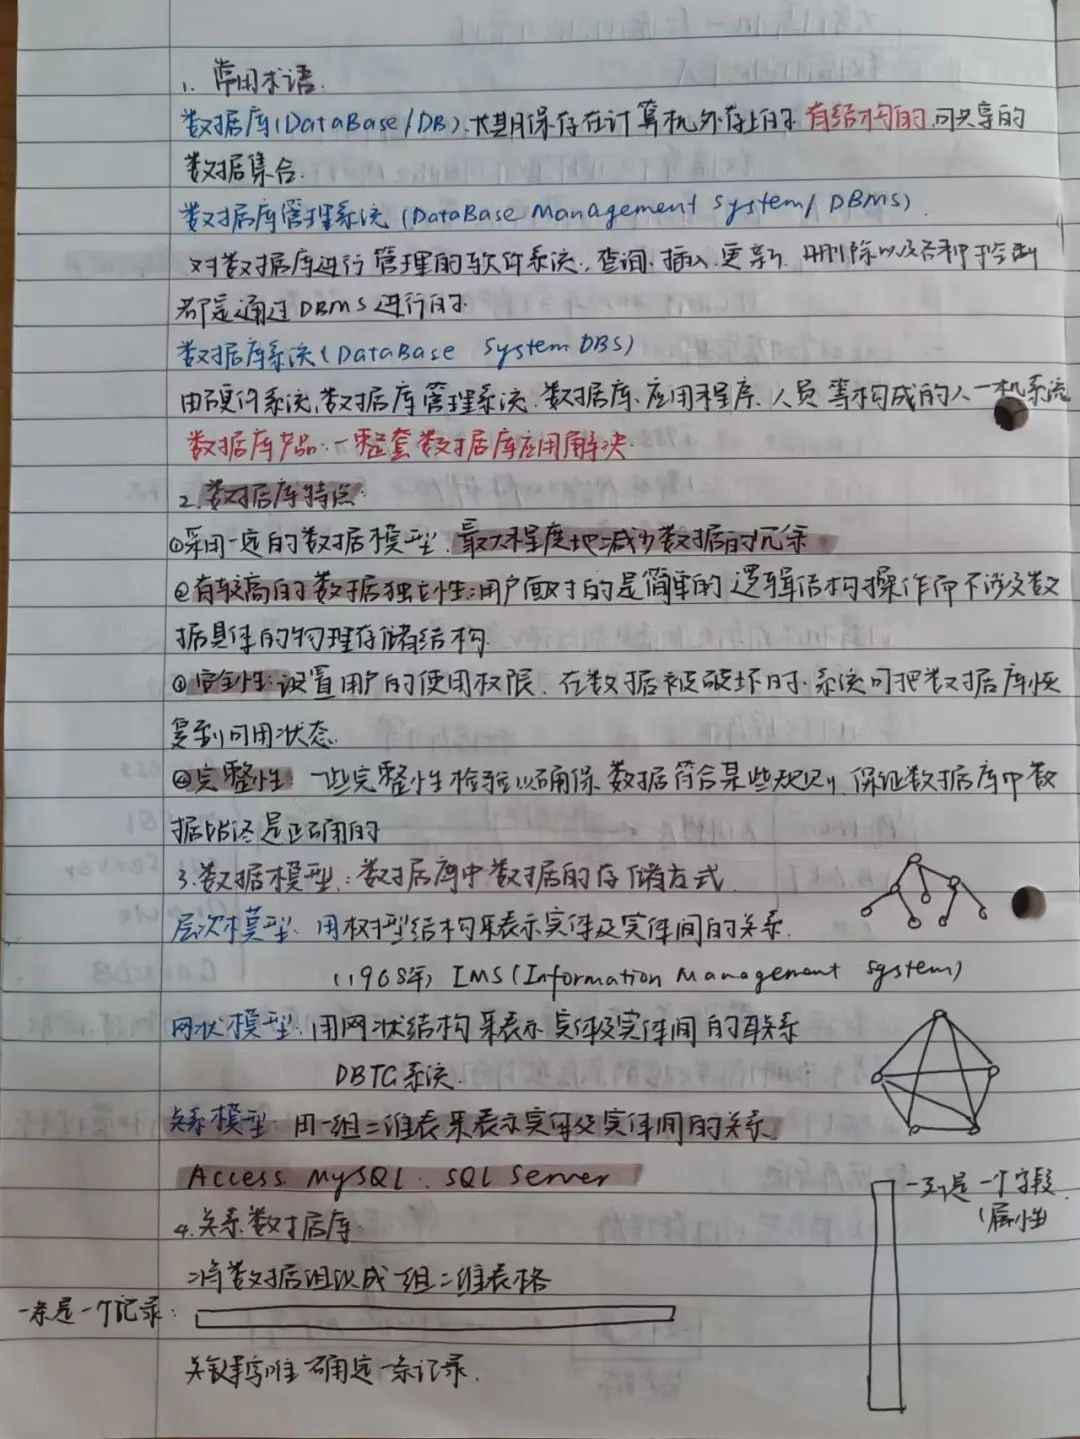 1. 常用术语.
数据库(DataBase/DB).长期保存在计算机外存上的.有结构的.可共享的
数据集合.
数据库管理系统(DataBase Management System/DBMS).
对数据库进行管理的软件系统.查询.插入.更新.删除以及各种控制
都是通过DBMS进行的.
数据库系统(DataBase System DBS)
由硬件系统,数据库管理系统.数据库、应用程序、人员等构成的人一机系统
数据库产品:一整套数据库应用解决.
2.数据库特点:
①采用一定的数据模型.最大程度地减少数据的冗余
②有较高的数据独立性:用户面对的是简单的逻辑结构操作而不涉及数
据具体的物理存储结构.
③安全性:设置用户的使用权限.在数据被破坏时.系统可把数据库恢
复到可用状态.
④完整性:一些完整性检验以确保数据符合某些规则,保证数据库中数
据始终是正确的
3.数据模型:数据库中数据的存储方式.
层次模型:用树型结构来表示实体及实体间的关系.
(1968年) IMS(Information Management System)
网状模型:用网状结构来表示实体及实体间的联系
DBTG系统.
关系模型:用一组二维表来表示实体及实体间的关系.
Access MySQL. SQL Server
一列是一个字段
(属性)
4.关系数据库.
将数据组织成一组二维表格
一条是一个记录:
关键字唯一确定一条记录.